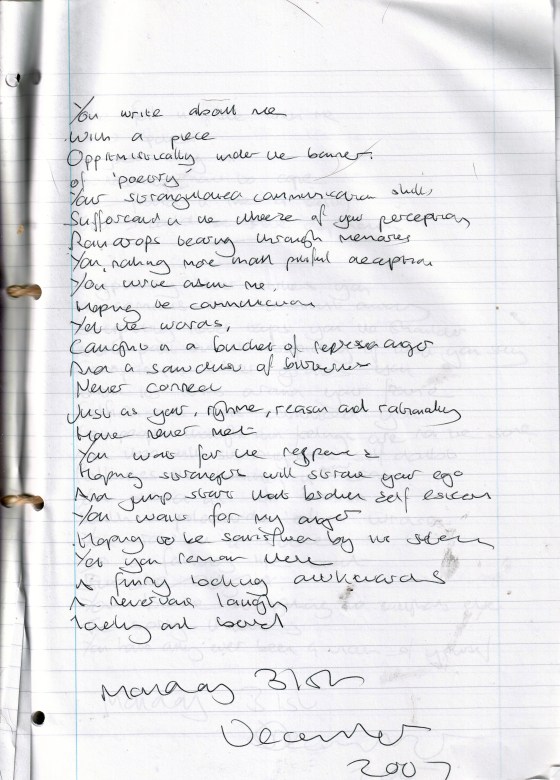 You write about me
With a piece
Opptimistically under the banner
of 'poetry'
Your strangulated communication skills
Suffocated in the wheeze of your perception
Raindrops tearing through memories
You, nothing more than painful deception
You write about me,
Hoping to communicate
Yet the words,
Caught in a bucket of repressed anger
And a sandwich of bitterness
Never connect
Just as your, ryhme, reason and rationality
Have never met
You wait for the response
Hoping strangers will stroke your ego
And jump start that broken self esteem
You wait for my anger
Hoping to be satisfied by its
Yet you remain there
A funny looking awkwards
A nervous laugh
lonely and bored
Monday 31st
December
2007